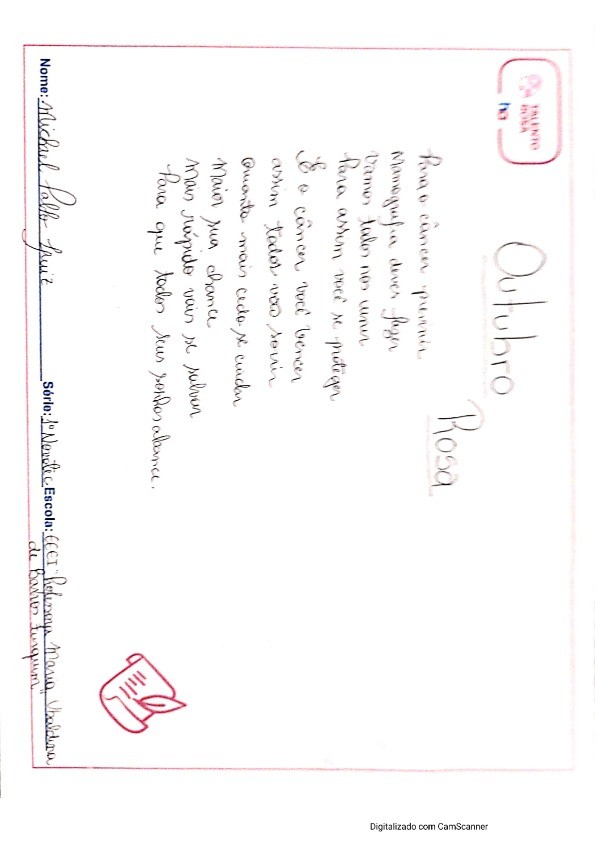 TALENTO
ROSA
Outubro
Rosa
Para o câncer prevenir
Mamografia deves fazer
Vamos todos nos unir
Para assim você se proteger
E o câncer você vencer
assim todos vão sorrir
Quanto mais cedo se cuidar
Maior sua chance
Mais rápido vais se salvar
Para que todos seus sonhos alcance.
Nome: Michael Pablo Série: 1º Novotec Escola: CCEI "Professora Maria Ubaldina
de Barros Furquim"
Digitalizado com CamScanner